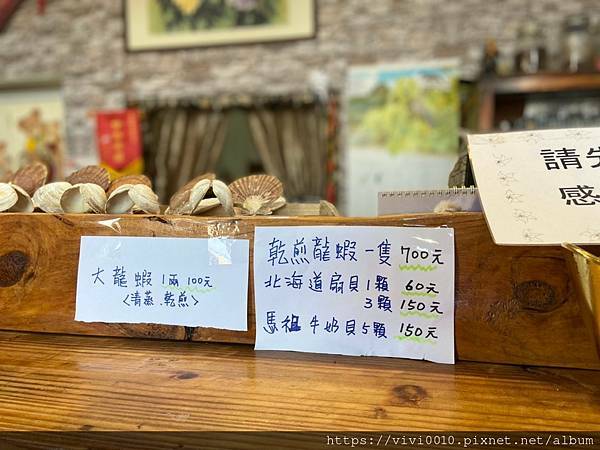 大龍蝦1兩100元
<清蒸、乾煎>
乾煎龍蝦一隻 700元
北海道扇貝1顆 60元
3顆 150元
馬祖牛奶貝5顆 150元
請先
感
https://vivi0010.pixnet.net/album